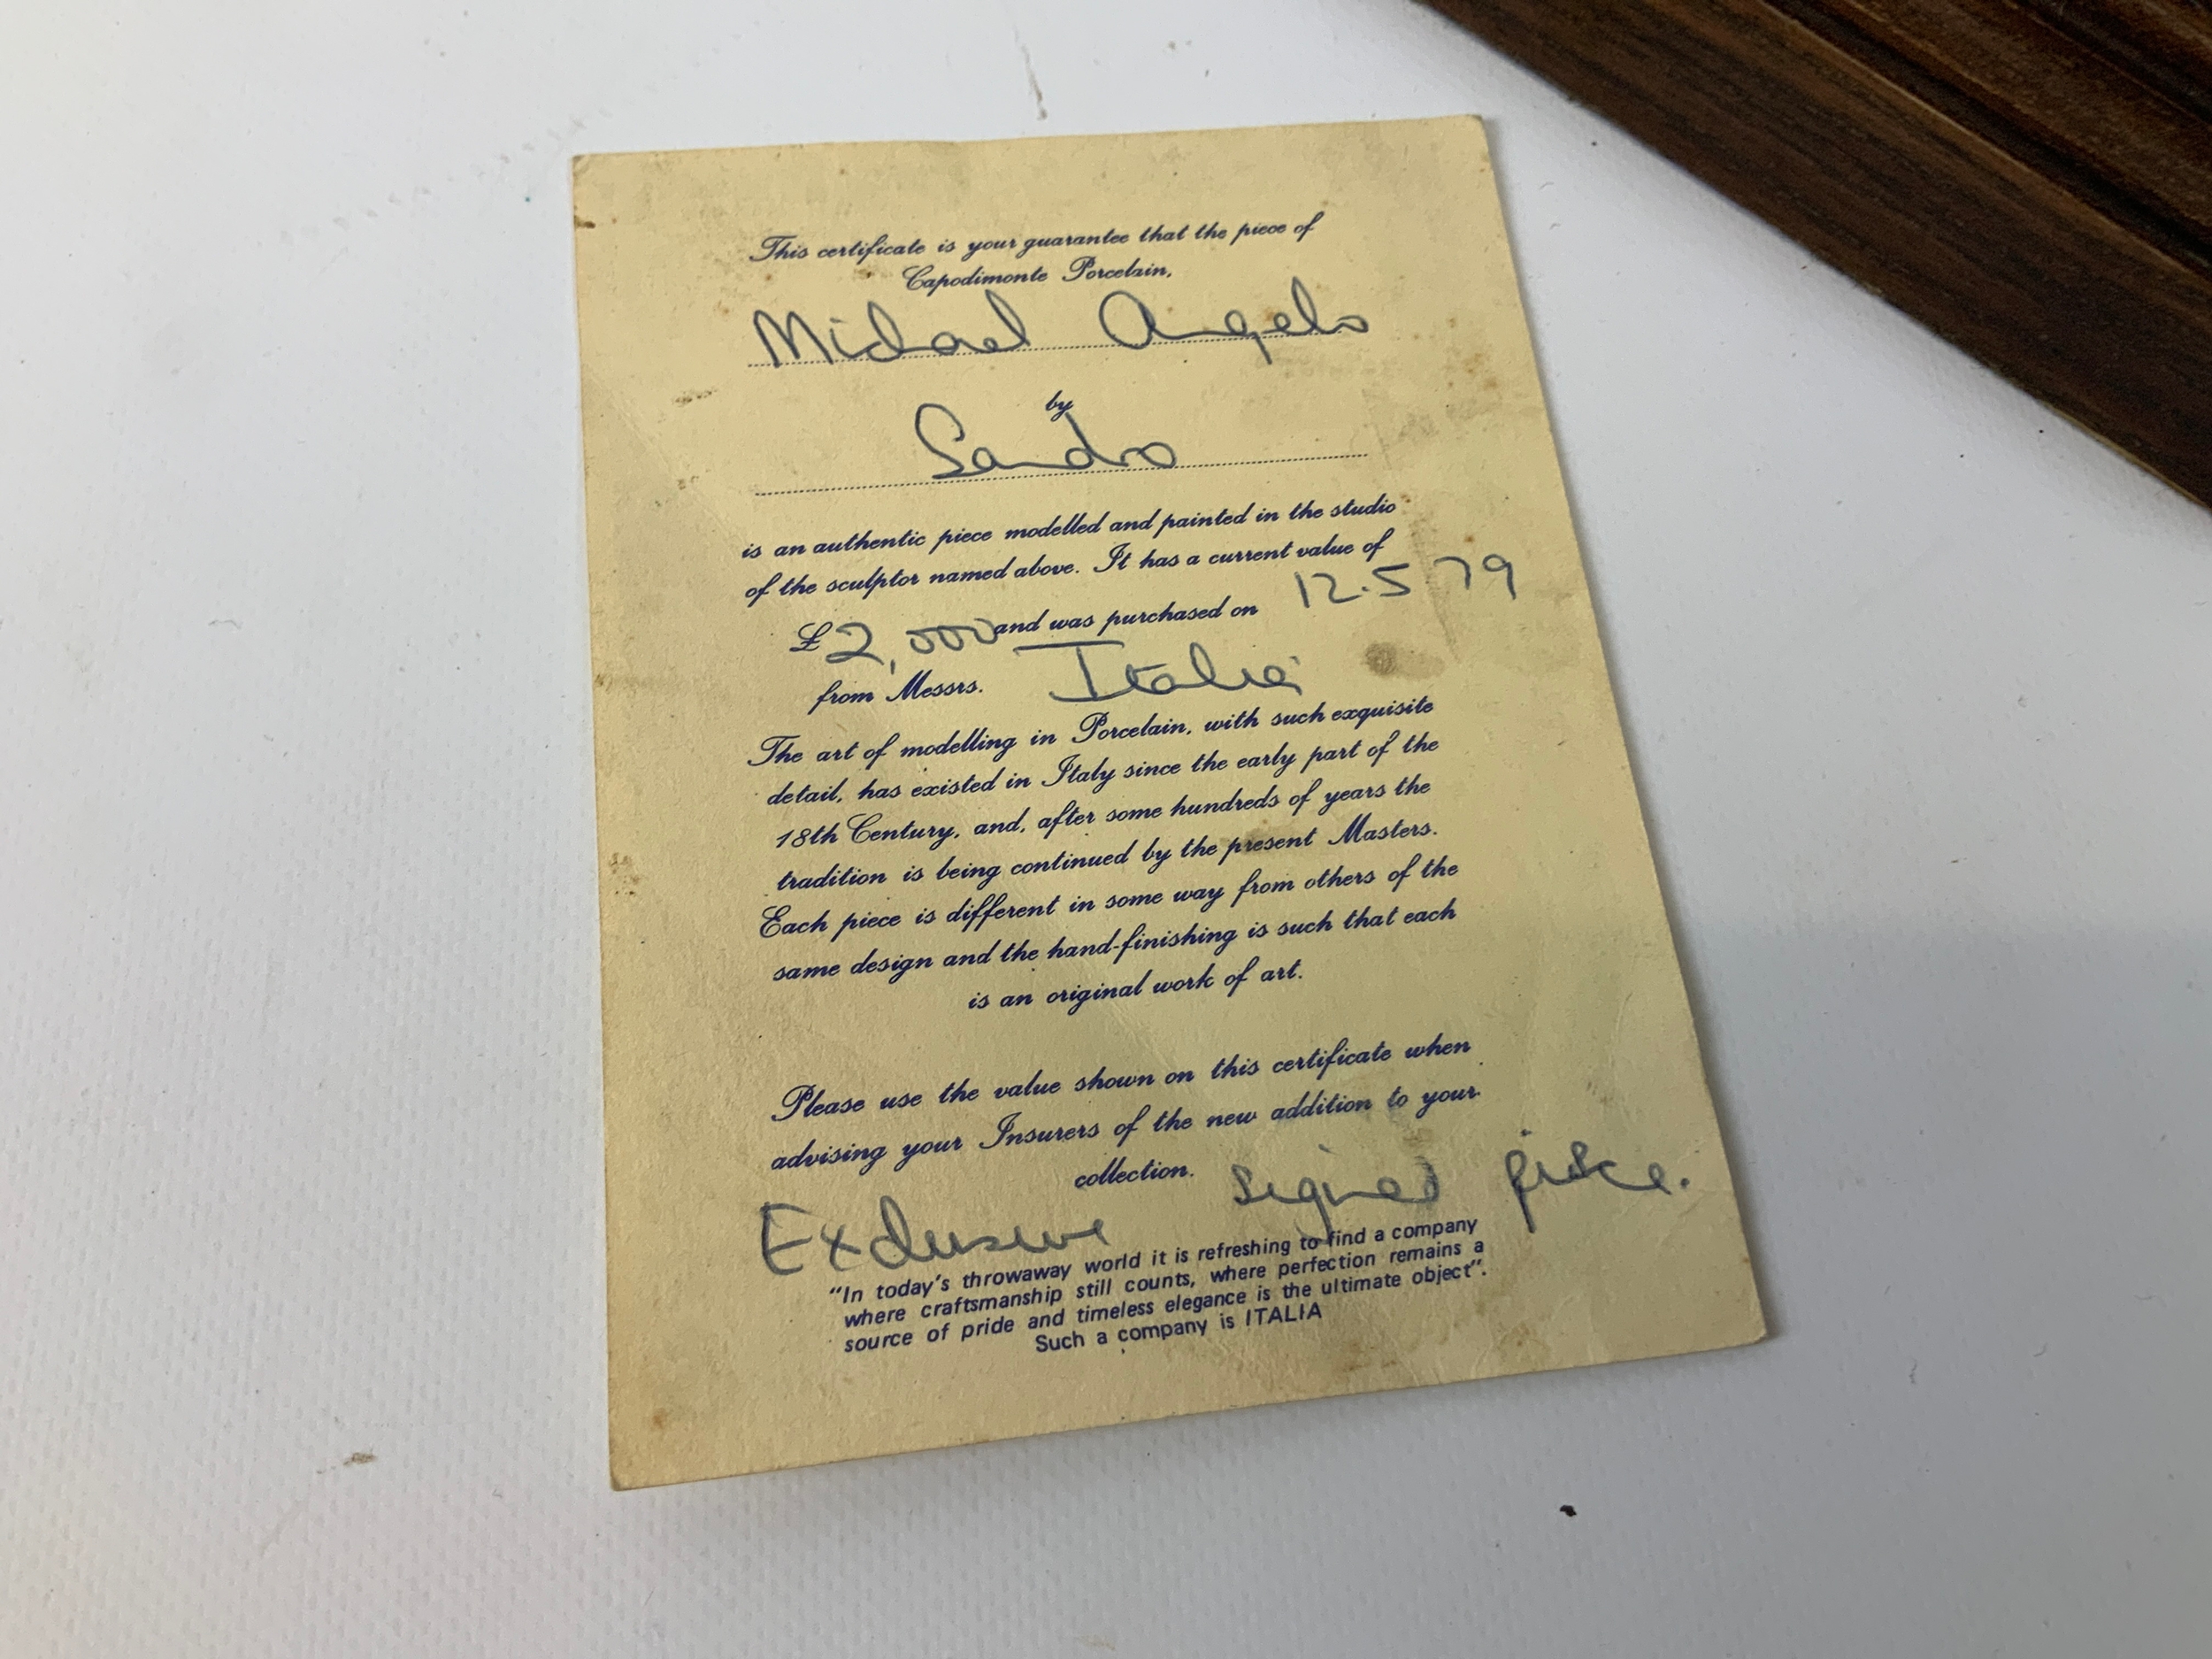 This certificate is your guarantee that the piece of
Capodimonte Porcelain,
Michael Angelo
by
Sandro
is an authentic piece modelled and painted in the studio
of the sculptor named above. It has a current value of
£2,000 and was purchased on 12.5 79
from Messrs. Italia
The art of modelling in Porcelain, with such exquisite
detail, has existed in Italy since the early part of the
18th Century, and, after some hundreds of years the
tradition is being continued by the present Masters.
Each piece is different in some way from others of the
same design and the hand-finishing is such that each
is an original work of art.
Please use the value shown on this certificate when
advising your Insurers of the new addition to your
collection.
Exclusive signed piece.
"In today's throwaway world it is refreshing to find a company
where craftsmanship still counts, where perfection remains a
source of pride and timeless elegance is the ultimate object".
Such a company is ITALIA